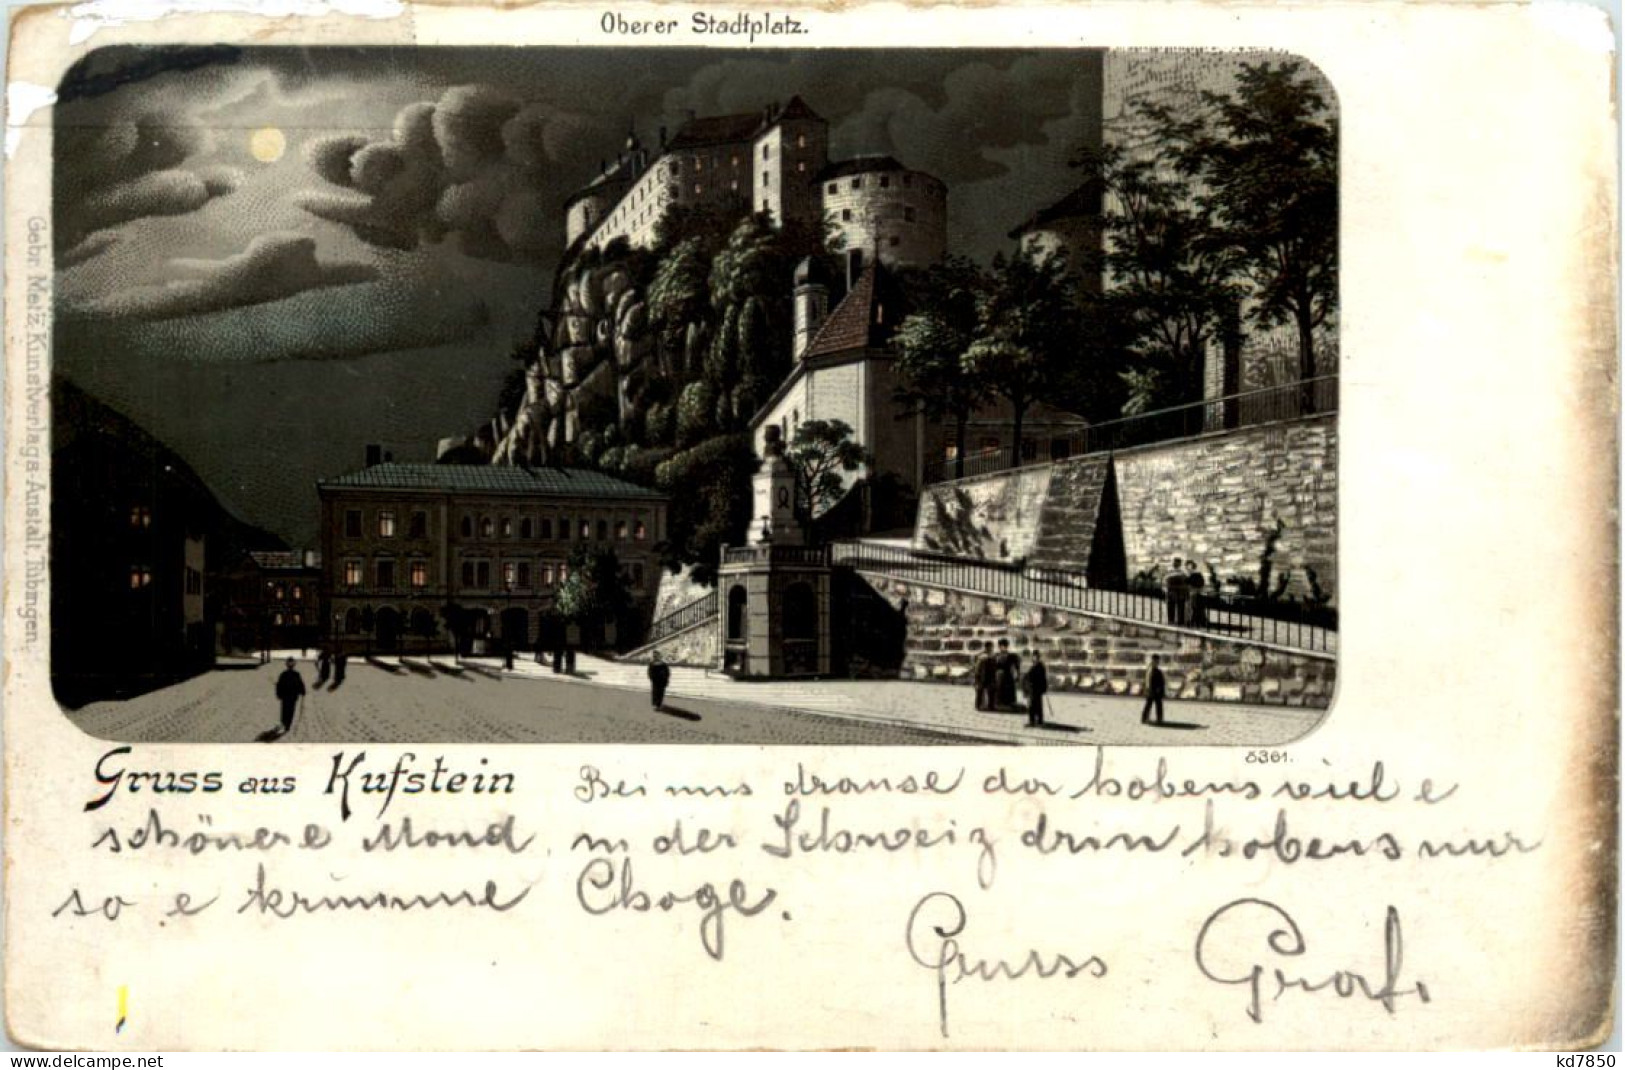 Oberer Stadtplatz.
Gebr. Metz, Kunstverlags-Anstalt, Tübingen.
8361.
Gruss aus Kufstein Bei uns drause da habens viel e
schönere Mond, in der Schweiz drin habens nur
so e krumme Choge.
Gruss Graf.
www.delcampe.net
kd7850